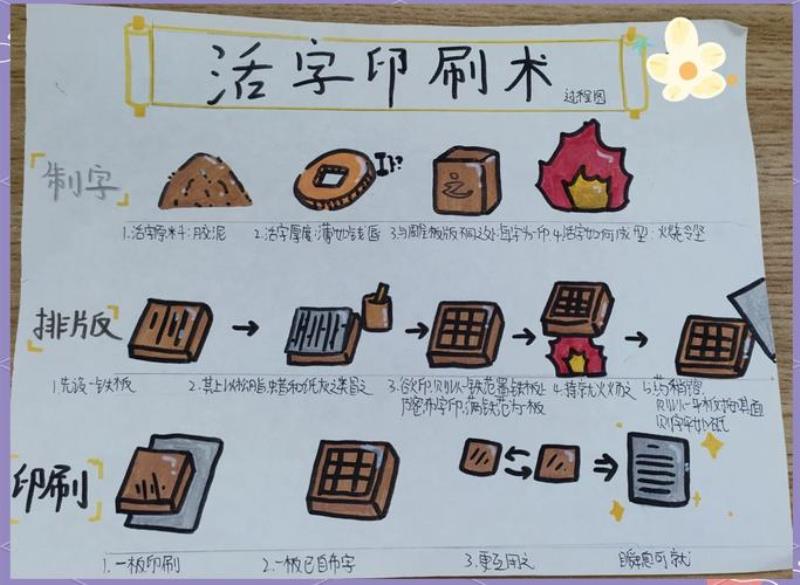 活字印刷术
过程图
制字
1.活字原料:胶泥
2.活字厚度:薄如钱唇
3.与雕版板版不同之处:每字为一印
4.活字如何成型:火烧令坚
排版
1.先设一铁板
2.其上以松脂,蜡和纸灰之类冒之
3.欲印则以一铁范置铁板上
密布字印,满铁范为一板
4.持就火炀之
5.药稍熔
则以一平板按其面
则字平如砥
印刷
1.一板印刷
2.一板已自布字
3.更互用之
瞬息可就